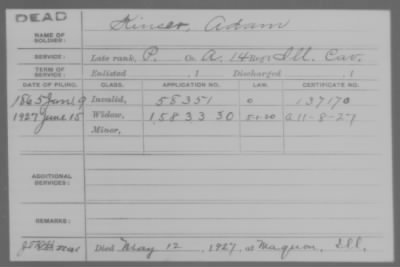 DEAD
Kinser, Adam
NAME OF
SOLDIER:
SERVICE: Late rank, P. Co. A, 14 Reg't Ill. Cav.
TERM OF
SERVICE: Enlisted , 1 Discharged , 1
DATE OF FILING. CLASS. APPLICATION NO. LAW. CERTIFICATE NO.
1865 June 9 Invalid, 58351 0 137170
1927 June 15 Widow, 1583330 5-1-20 A 11-8-27
Minor,
ADDITIONAL
SERVICES:
REMARKS:
Died May 12, 1927, at Maquon, Ill.